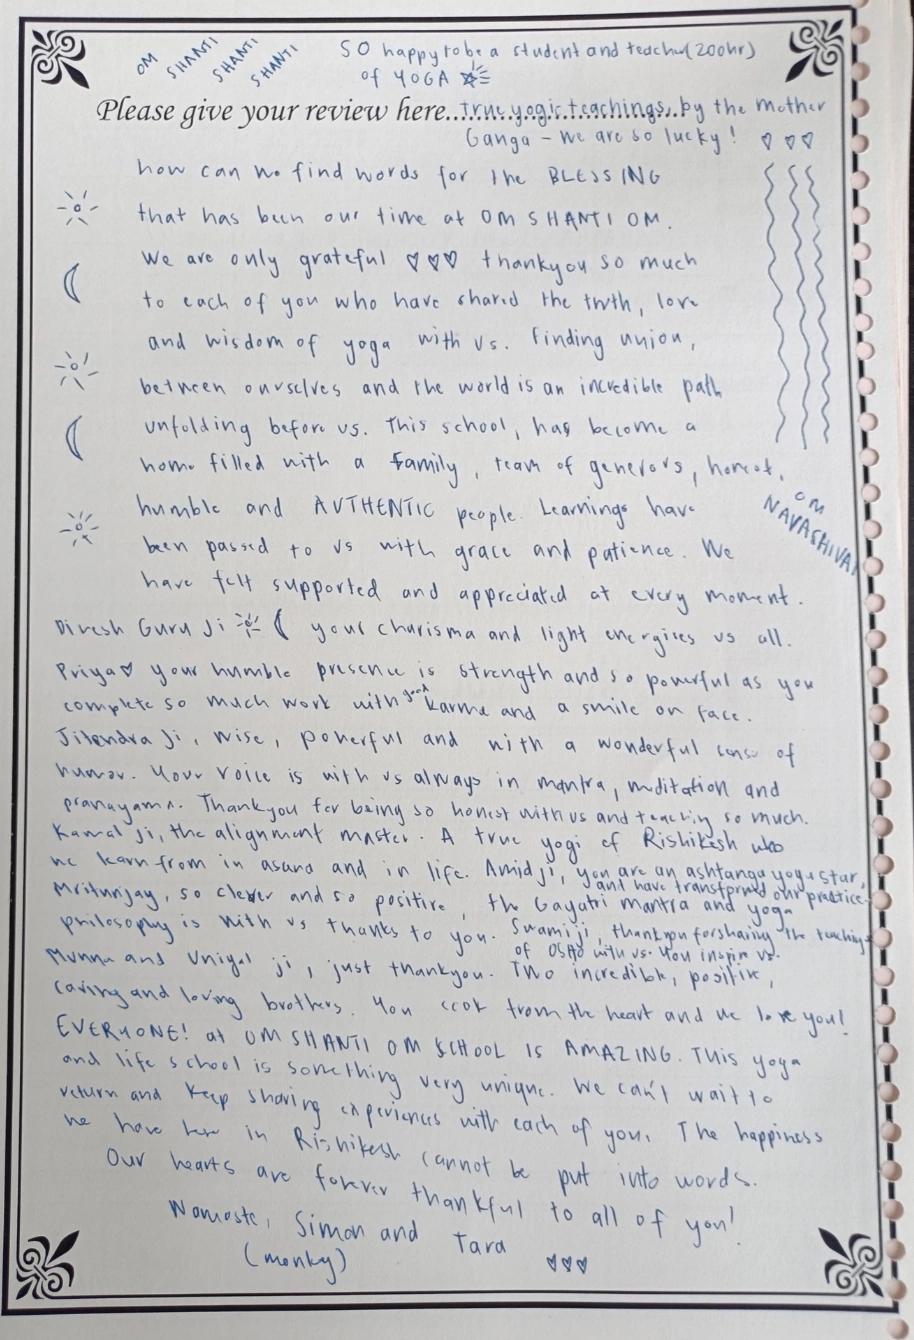 OM SHANTI SHANTI SHANTI
SO happy to be a student and teacher (200hr)
of YOGA
Please give your review here.......................
True yogic teachings, by the Mother
Ganga - we are so lucky! ♡ ♡ ♡
how can we find words for the BLESSING
that has been our time at OM SHANTI OM.
We are only grateful ♡♡♡ thankyou so much
to each of you who have shared the truth, love
and wisdom of yoga with us. Finding union,
between ourselves and the world is an incredible path
unfolding before us. This school, has become a
home filled with a family, team of generous, honest,
humble and AUTHENTIC people. Learnings have
been passed to us with grace and patience. We
have felt supported and appreciated at every moment.
OM
NAVASHIVAY
Divesh Guru Ji your charisma and light energises us all.
Priya♡ your humble presence is strength and so powerful as you
complete so much work with good karma and a smile on face.
Jitendra Ji, wise, powerful and with a wonderful sense of
humor. Your voice is with us always in mantra, meditation and
pranayama. Thankyou for being so honest with us and teaching so much.
Kamal ji, the alignment master. A true yogi of Rishikesh who
we learn from in asana and in life. Amidji, you are an ashtanga yoga star,
and have transformed our practice.
Mritunjay, so clever and so positive, the Gayatri mantra and yoga
philosophy is with us thanks to you. Swamiji, thankyou for sharing the teachings
of OSHO with us. You inspire us.
Munna and Uniyal ji, just thankyou. Two incredible, positive,
caring and loving brothers. You cook from the heart and we love you!
EVERYONE! at OM SHANTI OM SCHOOL IS AMAZING. This yoga
and life school is something very unique. We can't wait to
return and keep sharing experiences with each of you. The happiness
we have here in Rishikesh cannot be put into words.
Our hearts are forever thankful to all of you!
Namaste, Simon and Tara
(monky) ♡♡♡